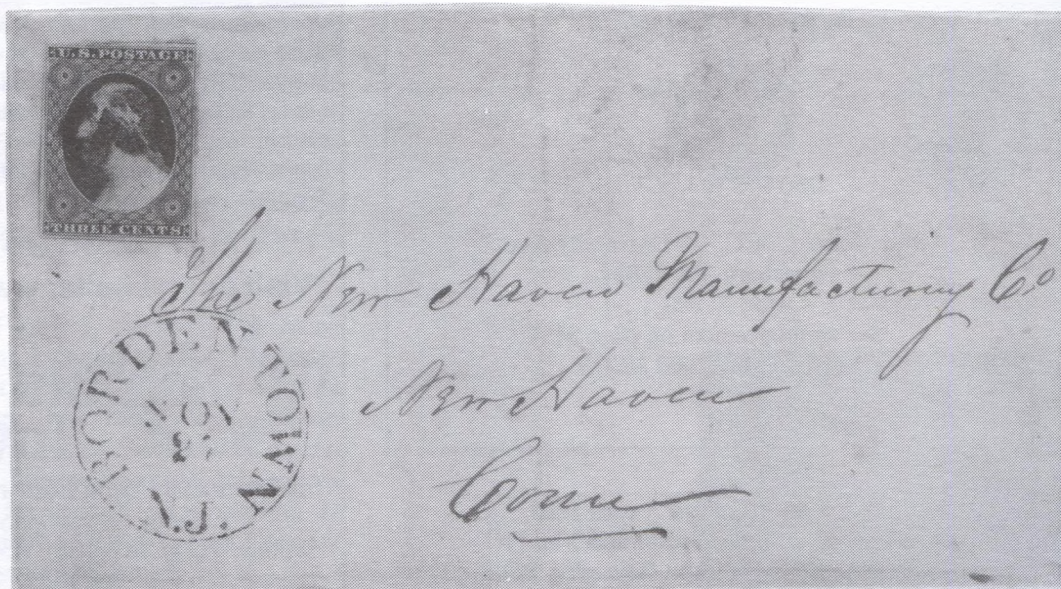 U.S. POSTAGE
THREE CENTS
The New Haven Manufacturing Co
New Haven
Conn
BORDENTOWN
NOV
N.J.